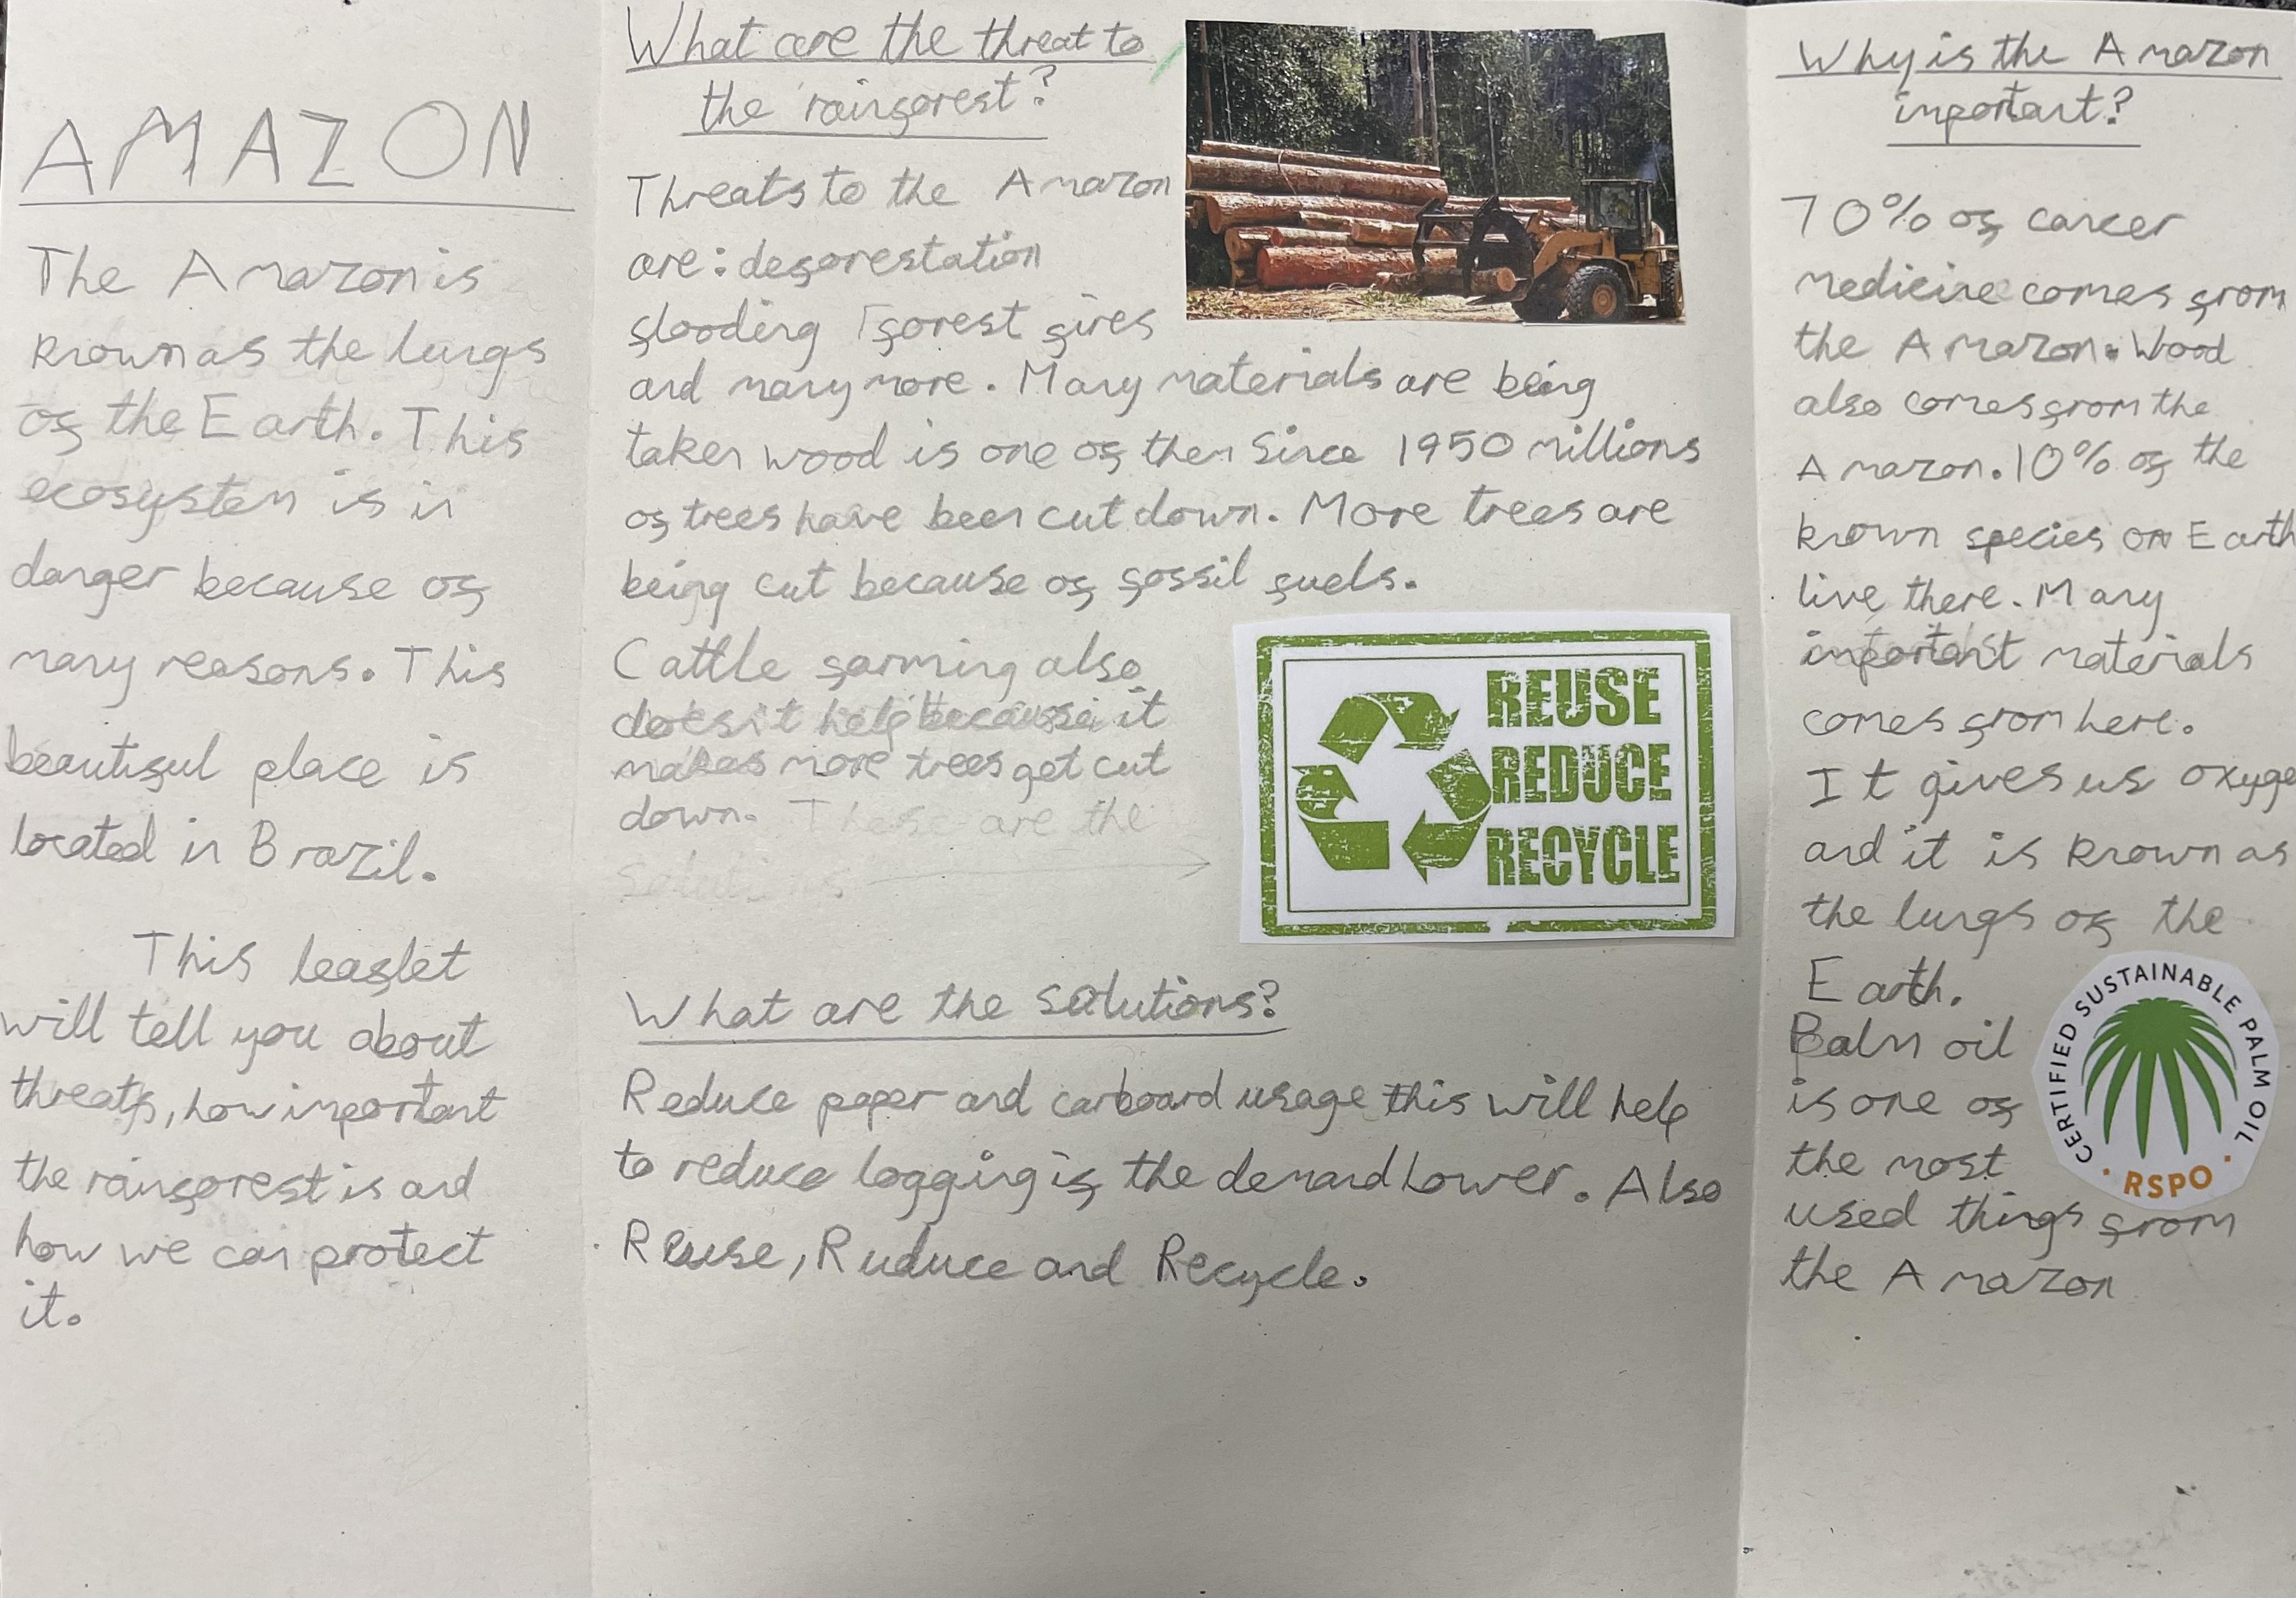 AMAZON
The Amazon is
known as the lungs
of the Earth. This
ecosystem is in
danger because of
many reasons. This
beautiful place is
located in Brazil.
This leaflet
will tell you about
threats, how important
the rainforest is and
how we can protect
it.
What are the threat to
the rainforest?
Threats to the Amazon
are: deforestation
flooding forest fires
and many more. Many materials are being
taken wood is one of them Since 1950 millions
of trees have been cut down. More trees are
being cut because of fossil fuels.
Cattle farming also
doesn't help because it
makes more trees get cut
down. These are the
solutions
REUSE
REDUCE
RECYCLE
What are the solutions?
Reduce paper and carboard usage this will help
to reduce logging if the demand lower. Also
Reuse, Ruduce and Recycle.
Why is the Amazon
important?
70% of cancer
medicine comes from
the Amazon. Wood
also comes from the
Amazon. 10% of the
known species on Earth
live there. Many
important materials
comes from here.
It gives us oxyge
and it is known as
the lungs of the
Earth.
Palm oil
is one of
the most
used things from
the Amazon
CERTIFIED SUSTAINABLE PALM OIL
RSPO